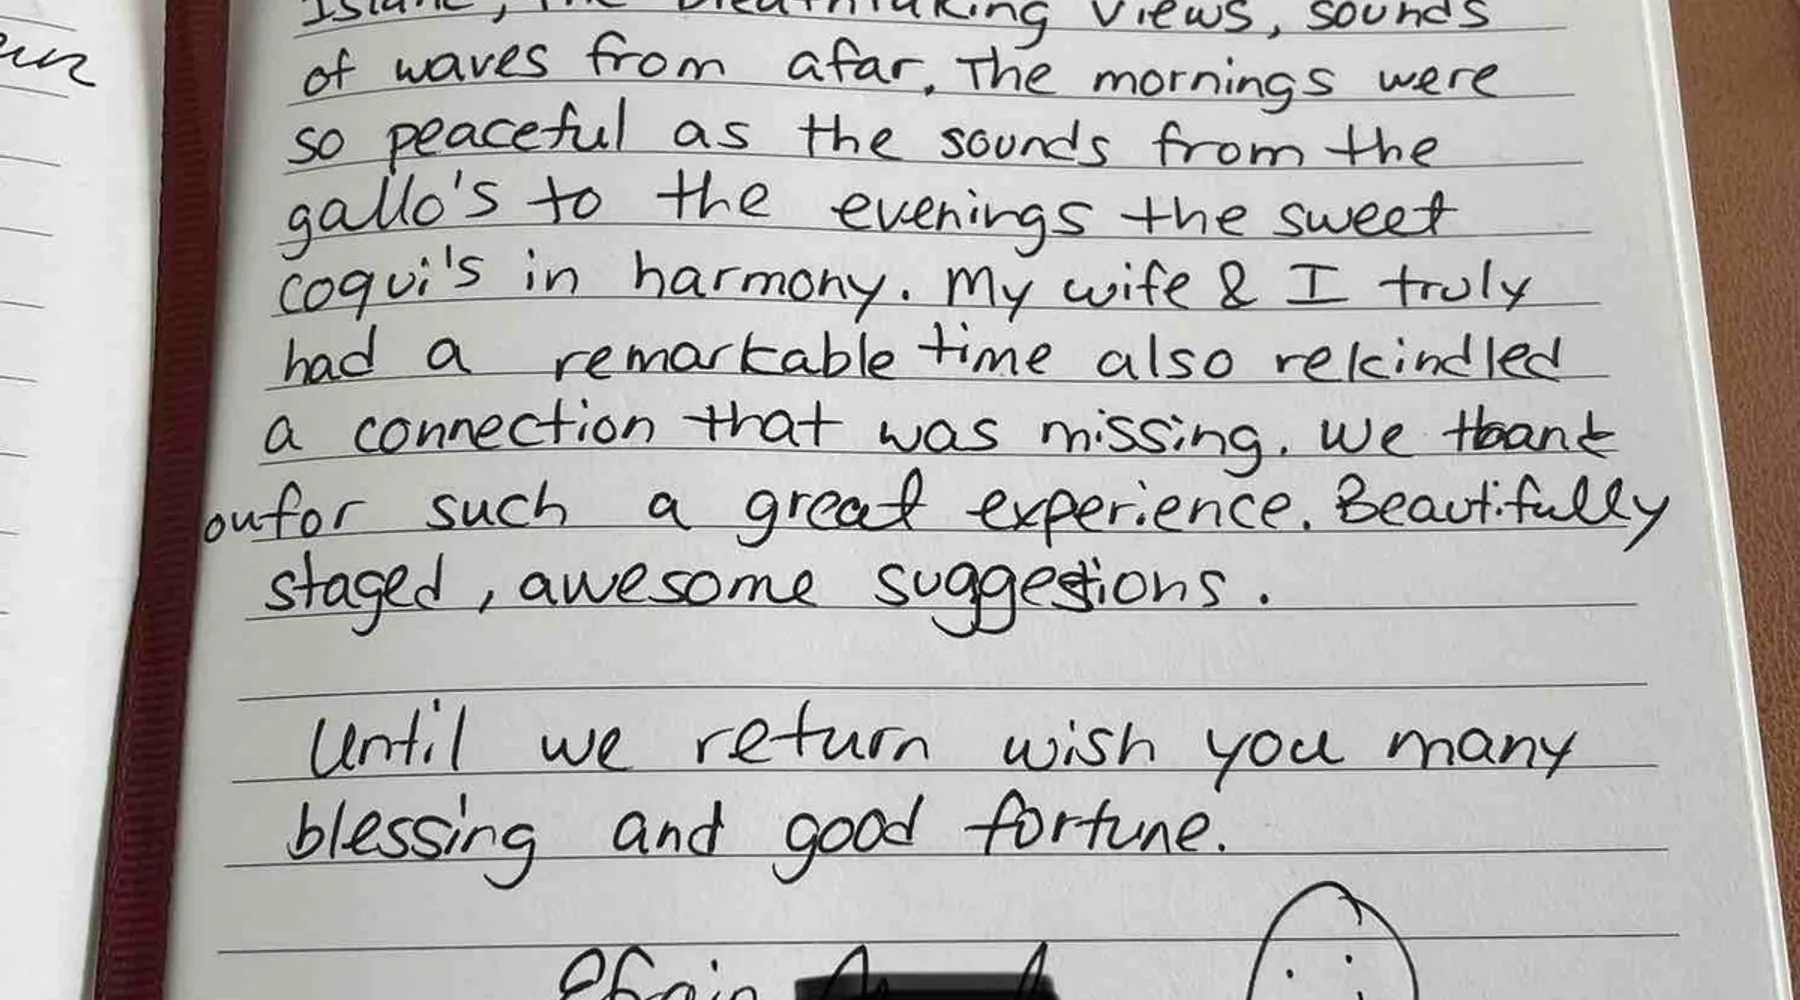 Island, the breathtaking views, sounds
of waves from afar. The mornings were
so peaceful as the sounds from the
gallo's to the evenings the sweet
coqui's in harmony. My wife & I truly
had a remarkable time also rekindled
a connection that was missing. We thank
oufor such a great experience. Beautifully
staged, awesome suggestions.
Until we return wish you many
blessing and good fortune.
Efrain